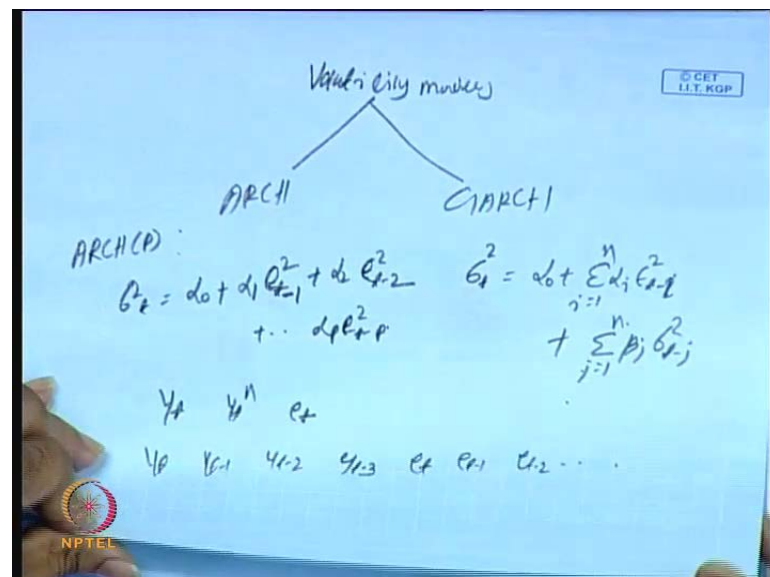 Volatility models
© CET
I.I.T. KGP
ARCH GARCH
ARCH(P) :
σ²t = α₀ + α₁ e²t-1 + α₂ e²t-2
+ .. αₚe²t-p
σt² = α₀ + Σⁿj=1 αj ε²t-j
+ Σⁿj=1 βj σ²t-j
yt yt^ et
yt yt-1 yt-2 yt-3 et et-1 et-2 ... .
NPTEL